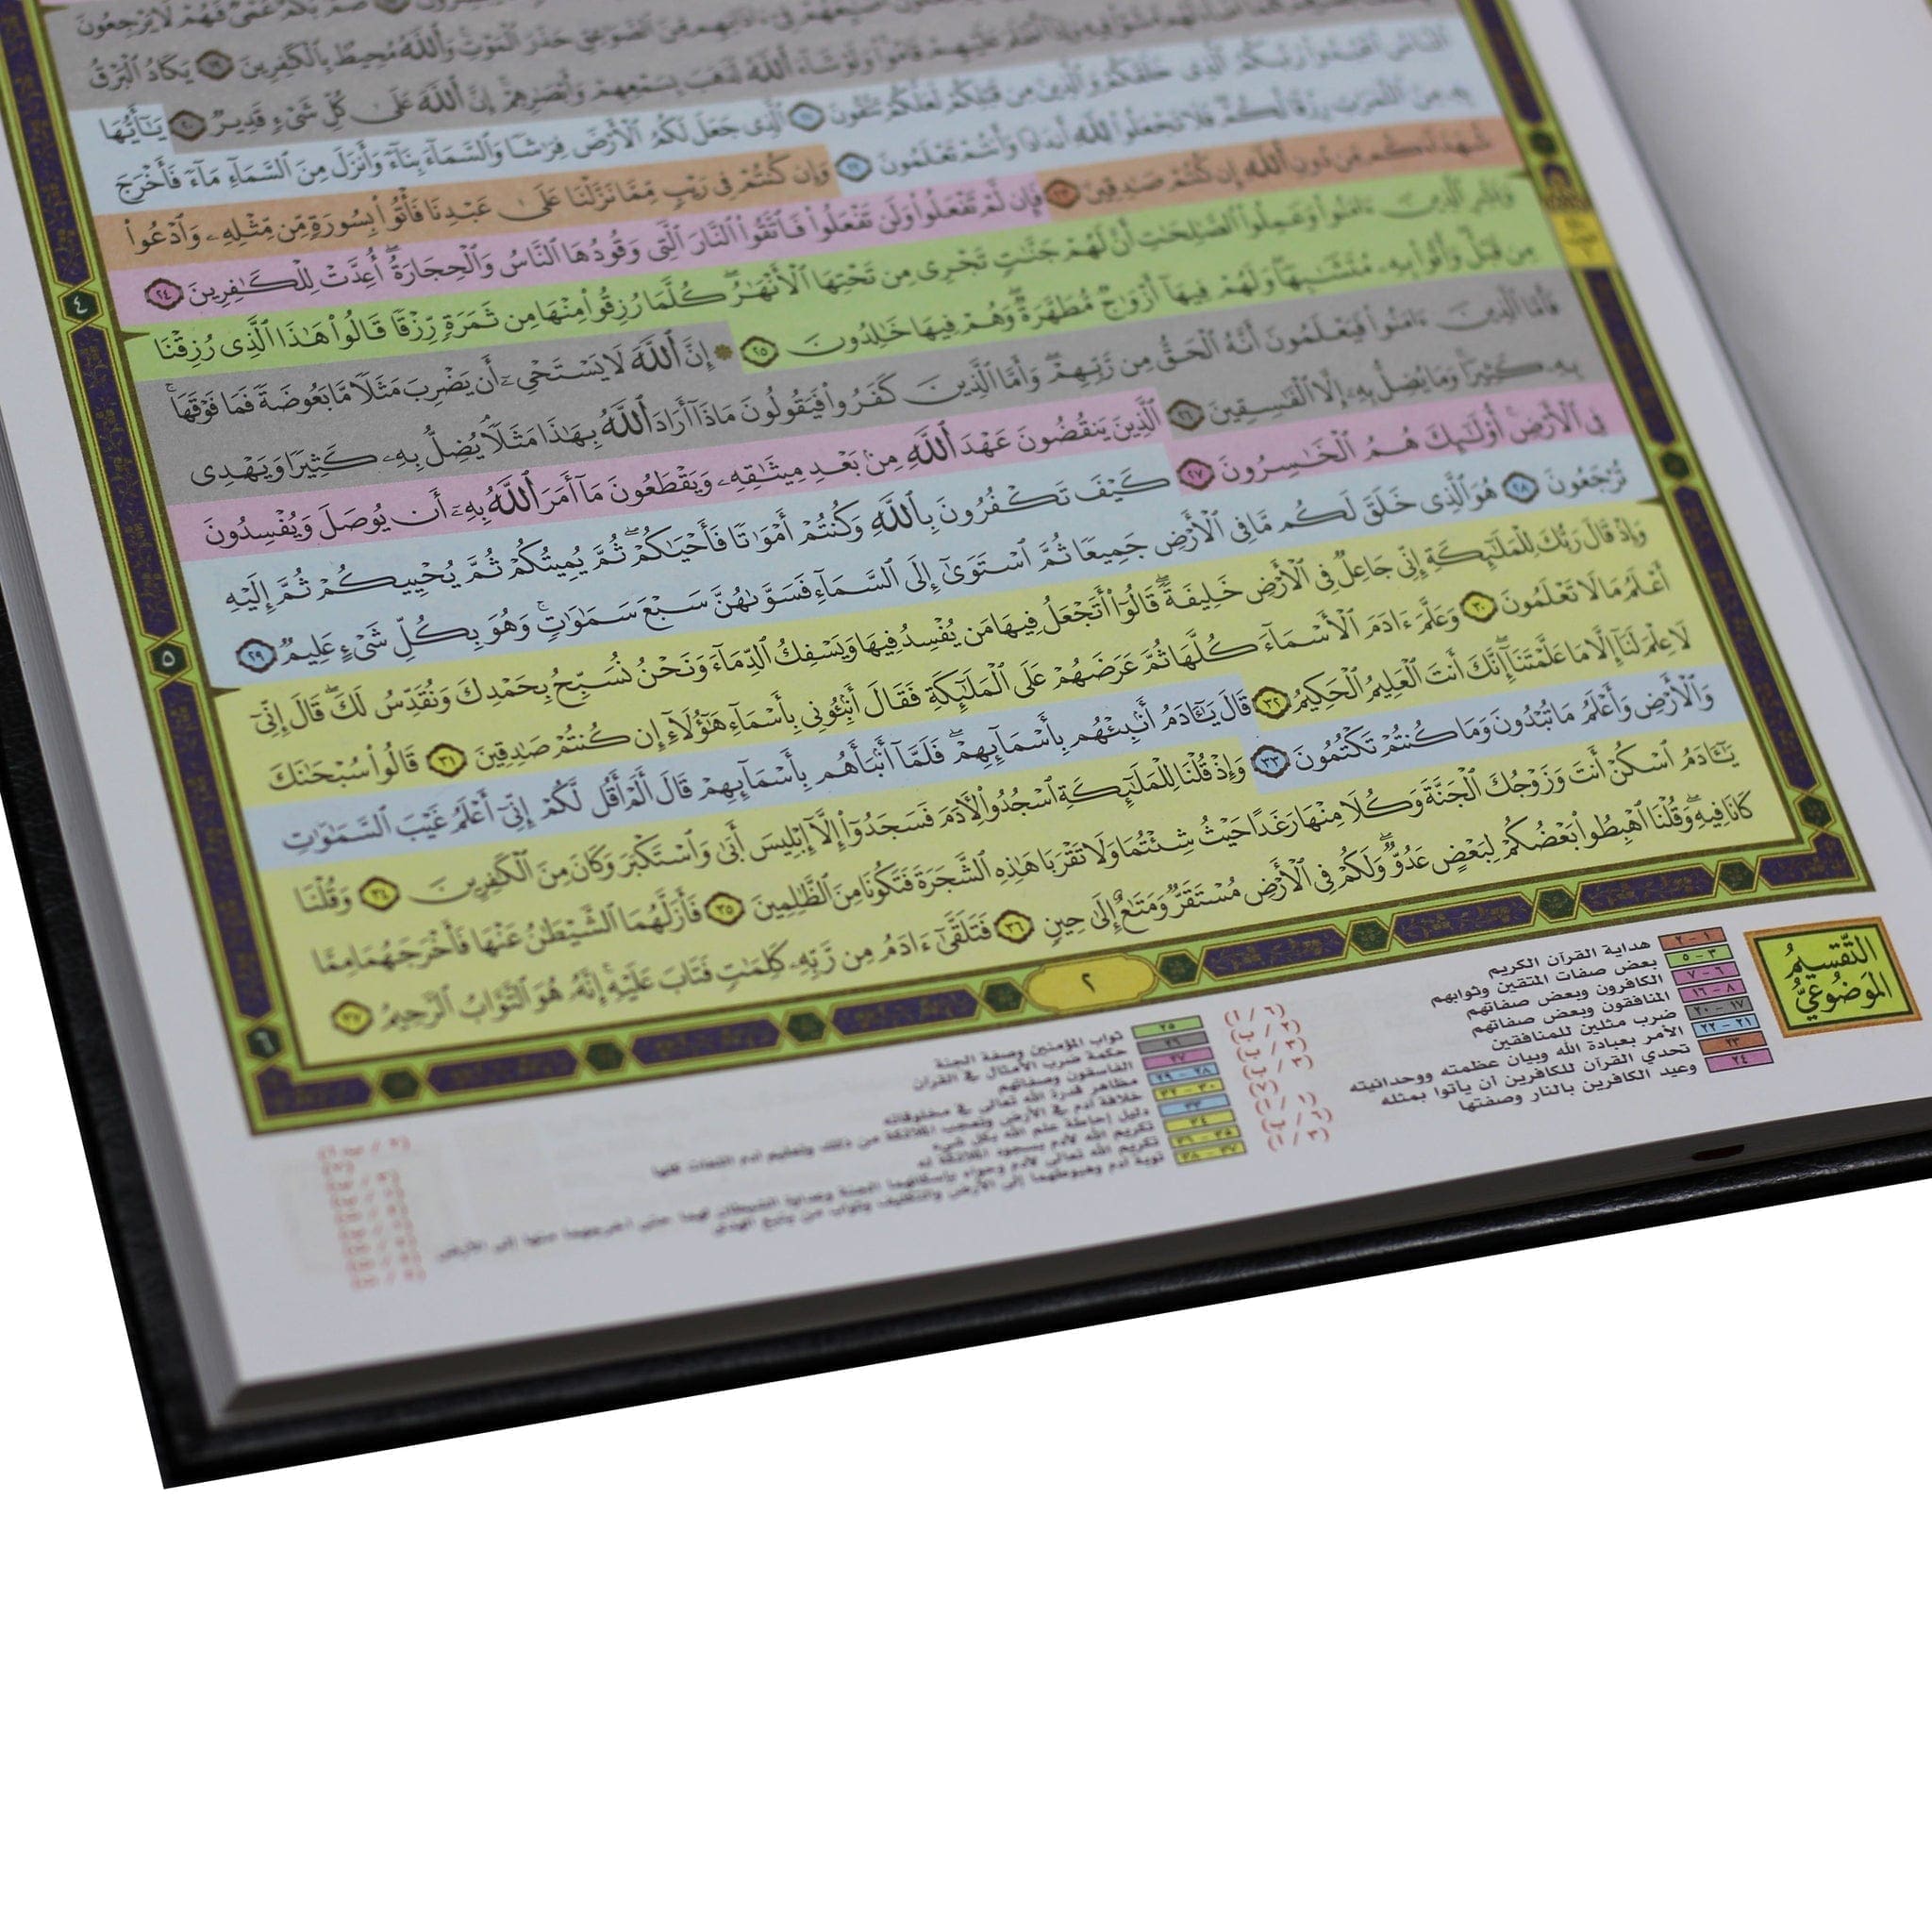 صُمٌّۢ بُكْمٌ عُمْىٌ فَهُمْ لَا يَرْجِعُونَ
فِىٓ ءَاذَانِهِم مِّنَ ٱلصَّوَٰعِقِ حَذَرَ ٱلْمَوْتِ وَٱللَّهُ مُحِيطٌۢ بِٱلْكَٰفِرِينَ ١٩ يَكَادُ ٱلْبَرْقُ
فِيهِ وَإِذَآ أَظْلَمَ عَلَيْهِمْ قَامُوا۟ وَلَوْ شَآءَ ٱللَّهُ لَذَهَبَ بِسَمْعِهِمْ وَأَبْصَٰرِهِمْ إِنَّ ٱللَّهَ عَلَىٰ كُلِّ شَىْءٍ قَدِيرٌ ٢٠ يَٰٓأَيُّهَا
ٱلنَّاسُ ٱعْبُدُوا۟ رَبَّكُمُ ٱلَّذِى خَلَقَكُمْ وَٱلَّذِينَ مِن قَبْلِكُمْ لَعَلَّكُمْ تَتَّقُونَ ٢١ ٱلَّذِى جَعَلَ لَكُمُ ٱلْأَرْضَ فِرَٰشًا وَٱلسَّمَآءَ بِنَآءً وَأَنزَلَ مِنَ ٱلسَّمَآءِ مَآءً فَأَخْرَجَ
بِهِۦ مِنَ ٱلثَّمَرَٰتِ رِزْقًا لَّكُمْ فَلَا تَجْعَلُوا۟ لِلَّهِ أَندَادًا وَأَنتُمْ تَعْلَمُونَ ٢٢ وَإِن كُنتُمْ فِى رَيْبٍ مِّمَّا نَزَّلْنَا عَلَىٰ عَبْدِنَا فَأْتُوا۟ بِسُورَةٍ مِّن مِّثْلِهِۦ وَٱدْعُوا۟
شُهَدَآءَكُم مِّن دُونِ ٱللَّهِ إِن كُنتُمْ صَٰدِقِينَ ٢٣ فَإِن لَّمْ تَفْعَلُوا۟ وَلَن تَفْعَلُوا۟ فَٱتَّقُوا۟ ٱلنَّارَ ٱلَّتِى وَقُودُهَا ٱلنَّاسُ وَٱلْحِجَارَةُ أُعِدَّتْ لِلْكَٰفِرِينَ ٢٤
وَبَشِّرِ ٱلَّذِينَ ءَامَنُوا۟ وَعَمِلُوا۟ ٱلصَّٰلِحَٰتِ أَنَّ لَهُمْ جَنَّٰتٍ تَجْرِى مِن تَحْتِهَا ٱلْأَنْهَٰرُ كُلَّمَا رُزِقُوا۟ مِنْهَا مِن ثَمَرَةٍ رِّزْقًا قَالُوا۟ هَٰذَا ٱلَّذِى رُزِقْنَا
مِن قَبْلُ وَأُتُوا۟ بِهِۦ مُتَشَٰبِهًا وَلَهُمْ فِيهَآ أَزْوَٰجٌ مُّطَهَّرَةٌ وَهُمْ فِيهَا خَٰلِدُونَ ٢٥ ۞ إِنَّ ٱللَّهَ لَا يَسْتَحْىِۦٓ أَن يَضْرِبَ مَثَلًا مَّا بَعُوضَةً فَمَا فَوْقَهَا
فَأَمَّا ٱلَّذِينَ ءَامَنُوا۟ فَيَعْلَمُونَ أَنَّهُ ٱلْحَقُّ مِن رَّبِّهِمْ وَأَمَّا ٱلَّذِينَ كَفَرُوا۟ فَيَقُولُونَ مَاذَآ أَرَادَ ٱللَّهُ بِهَٰذَا مَثَلًا يُضِلُّ بِهِۦ كَثِيرًا وَيَهْدِى
بِهِۦ كَثِيرًا وَمَا يُضِلُّ بِهِۦٓ إِلَّا ٱلْفَٰسِقِينَ ٢٦ ٱلَّذِينَ يَنقُضُونَ عَهْدَ ٱللَّهِ مِنۢ بَعْدِ مِيثَٰقِهِۦ وَيَقْطَعُونَ مَآ أَمَرَ ٱللَّهُ بِهِۦٓ أَن يُوصَلَ وَيُفْسِدُونَ
فِى ٱلْأَرْضِ أُو۟لَٰٓئِكَ هُمُ ٱلْخَٰسِرُونَ ٢٧ كَيْفَ تَكْفُرُونَ بِٱللَّهِ وَكُنتُمْ أَمْوَٰتًا فَأَحْيَٰكُمْ ثُمَّ يُمِيتُكُمْ ثُمَّ يُحْيِيكُمْ ثُمَّ إِلَيْهِ
تُرْجَعُونَ ٢٨ هُوَ ٱلَّذِى خَلَقَ لَكُم مَّا فِى ٱلْأَرْضِ جَمِيعًا ثُمَّ ٱسْتَوَىٰٓ إِلَى ٱلسَّمَآءِ فَسَوَّىٰهُنَّ سَبْعَ سَمَٰوَٰتٍ وَهُوَ بِكُلِّ شَىْءٍ عَلِيمٌ ٢٩
وَإِذْ قَالَ رَبُّكَ لِلْمَلَٰٓئِكَةِ إِنِّى جَاعِلٌ فِى ٱلْأَرْضِ خَلِيفَةً قَالُوٓا۟ أَتَجْعَلُ فِيهَا مَن يُفْسِدُ فِيهَا وَيَسْفِكُ ٱلدِّمَآءَ وَنَحْنُ نُسَبِّحُ بِحَمْدِكَ وَنُقَدِّسُ لَكَ قَالَ إِنِّىٓ
أَعْلَمُ مَا لَا تَعْلَمُونَ ٣٠ وَعَلَّمَ ءَادَمَ ٱلْأَسْمَآءَ كُلَّهَا ثُمَّ عَرَضَهُمْ عَلَى ٱلْمَلَٰٓئِكَةِ فَقَالَ أَنۢبِـُٔونِى بِأَسْمَآءِ هَٰٓؤُلَآءِ إِن كُنتُمْ صَٰدِقِينَ ٣١ قَالُوا۟ سُبْحَٰنَكَ
لَا عِلْمَ لَنَآ إِلَّا مَا عَلَّمْتَنَآ إِنَّكَ أَنتَ ٱلْعَلِيمُ ٱلْحَكِيمُ ٣٢ قَالَ يَٰٓـَٔادَمُ أَنۢبِئْهُم بِأَسْمَآئِهِمْ فَلَمَّآ أَنۢبَأَهُم بِأَسْمَآئِهِمْ قَالَ أَلَمْ أَقُل لَّكُمْ إِنِّىٓ أَعْلَمُ غَيْبَ ٱلسَّمَٰوَٰتِ
وَٱلْأَرْضِ وَأَعْلَمُ مَا تُبْدُونَ وَمَا كُنتُمْ تَكْتُمُونَ ٣٣ وَإِذْ قُلْنَا لِلْمَلَٰٓئِكَةِ ٱسْجُدُوا۟ لِـَٔادَمَ فَسَجَدُوٓا۟ إِلَّآ إِبْلِيسَ أَبَىٰ وَٱسْتَكْبَرَ وَكَانَ مِنَ ٱلْكَٰفِرِينَ ٣٤ وَقُلْنَا
يَٰٓـَٔادَمُ ٱسْكُنْ أَنتَ وَزَوْجُكَ ٱلْجَنَّةَ وَكُلَا مِنْهَا رَغَدًا حَيْثُ شِئْتُمَا وَلَا تَقْرَبَا هَٰذِهِ ٱلشَّجَرَةَ فَتَكُونَا مِنَ ٱلظَّٰلِمِينَ ٣٥ فَأَزَلَّهُمَا ٱلشَّيْطَٰنُ عَنْهَا فَأَخْرَجَهُمَا مِمَّا
كَانَا فِيهِ وَقُلْنَا ٱهْبِطُوا۟ بَعْضُكُمْ لِبَعْضٍ عَدُوٌّ وَلَكُمْ فِى ٱلْأَرْضِ مُسْتَقَرٌّ وَمَتَٰعٌ إِلَىٰ حِينٍ ٣٦ فَتَلَقَّىٰٓ ءَادَمُ مِن رَّبِّهِۦ كَلِمَٰتٍ فَتَابَ عَلَيْهِ إِنَّهُۥ هُوَ ٱلتَّوَّابُ ٱلرَّحِيمُ ٣٧
٤
٥
٦
٢
التَّقسِيمُ
المَوضُوعِيُّ
١ - ٢ هداية القرآن الكريم
٣ - ٥ بعض صفات المتقين وثوابهم
٦ - ٧ الكافرون وبعض صفاتهم
٨ - ١٦ المنافقون وبعض صفاتهم
١٧ - ٢٠ ضرب مثلين للمنافقين
٢١ - ٢٢ الأمر بعبادة الله وبيان عظمته ووحدانيته
٢٣ تحدي القرآن للكافرين أن يأتوا بمثله
٢٤ وعيد الكافرين بالنار وصفتها
٢٥ ثواب المؤمنين وصفة الجنة
٢٦ حكمة ضرب الأمثال في القرآن
٢٧ الفاسقون وصفاتهم
٢٨ - ٢٩ مظاهر قدرة الله تعالى في مخلوقاته
٣٠ - ٣٢ خلافة آدم في الأرض وتعجب الملائكة من ذلك وتعليم آدم اللغات كلها
٣٣ دليل إحاطة علم الله بكل شيء
٣٤ تكريم الله لآدم بسجود الملائكة له
٣٥ - ٣٦ تكريم الله تعالى لآدم وحواء بإسكانهما الجنة وعداوة الشيطان لهما حتى أخرجهما منها إلى الأرض
٣٧ - ٣٨ توبة آدم وهبوطهما إلى الأرض والتكليف وثواب من يتبع الهدى